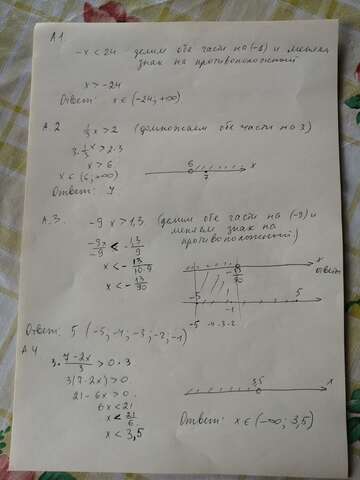 А1.
-x < 24 делим обе части на (-1) и меняем
знак на противоположный
x > -24
Ответ: x∈(-24; +∞)
А.2 1/3 x > 2 (домножаем обе части на 3)
3·1/3 x > 2·3
x > 6
x∈(6; +∞)
Ответ: 7
6 7 x
А.3. -9x > 1,3 (делим обе части на (-9) и
меняем знак на
противоположный)
-9x/-9 < -13/9
x < -13/10·9
x < -13/90
-13/90 x
-5 -1 5
-5 -4 -3 -2
Ответ: 5 (-5, -4; -3; -2; -1)
А4
3·(7-2x)/3 > 0·3
3(7-2x) > 0
21-6x > 0
6x < 21
x < 21/6
x < 3,5
3,5 x
Ответ: x∈(-∞; 3,5)